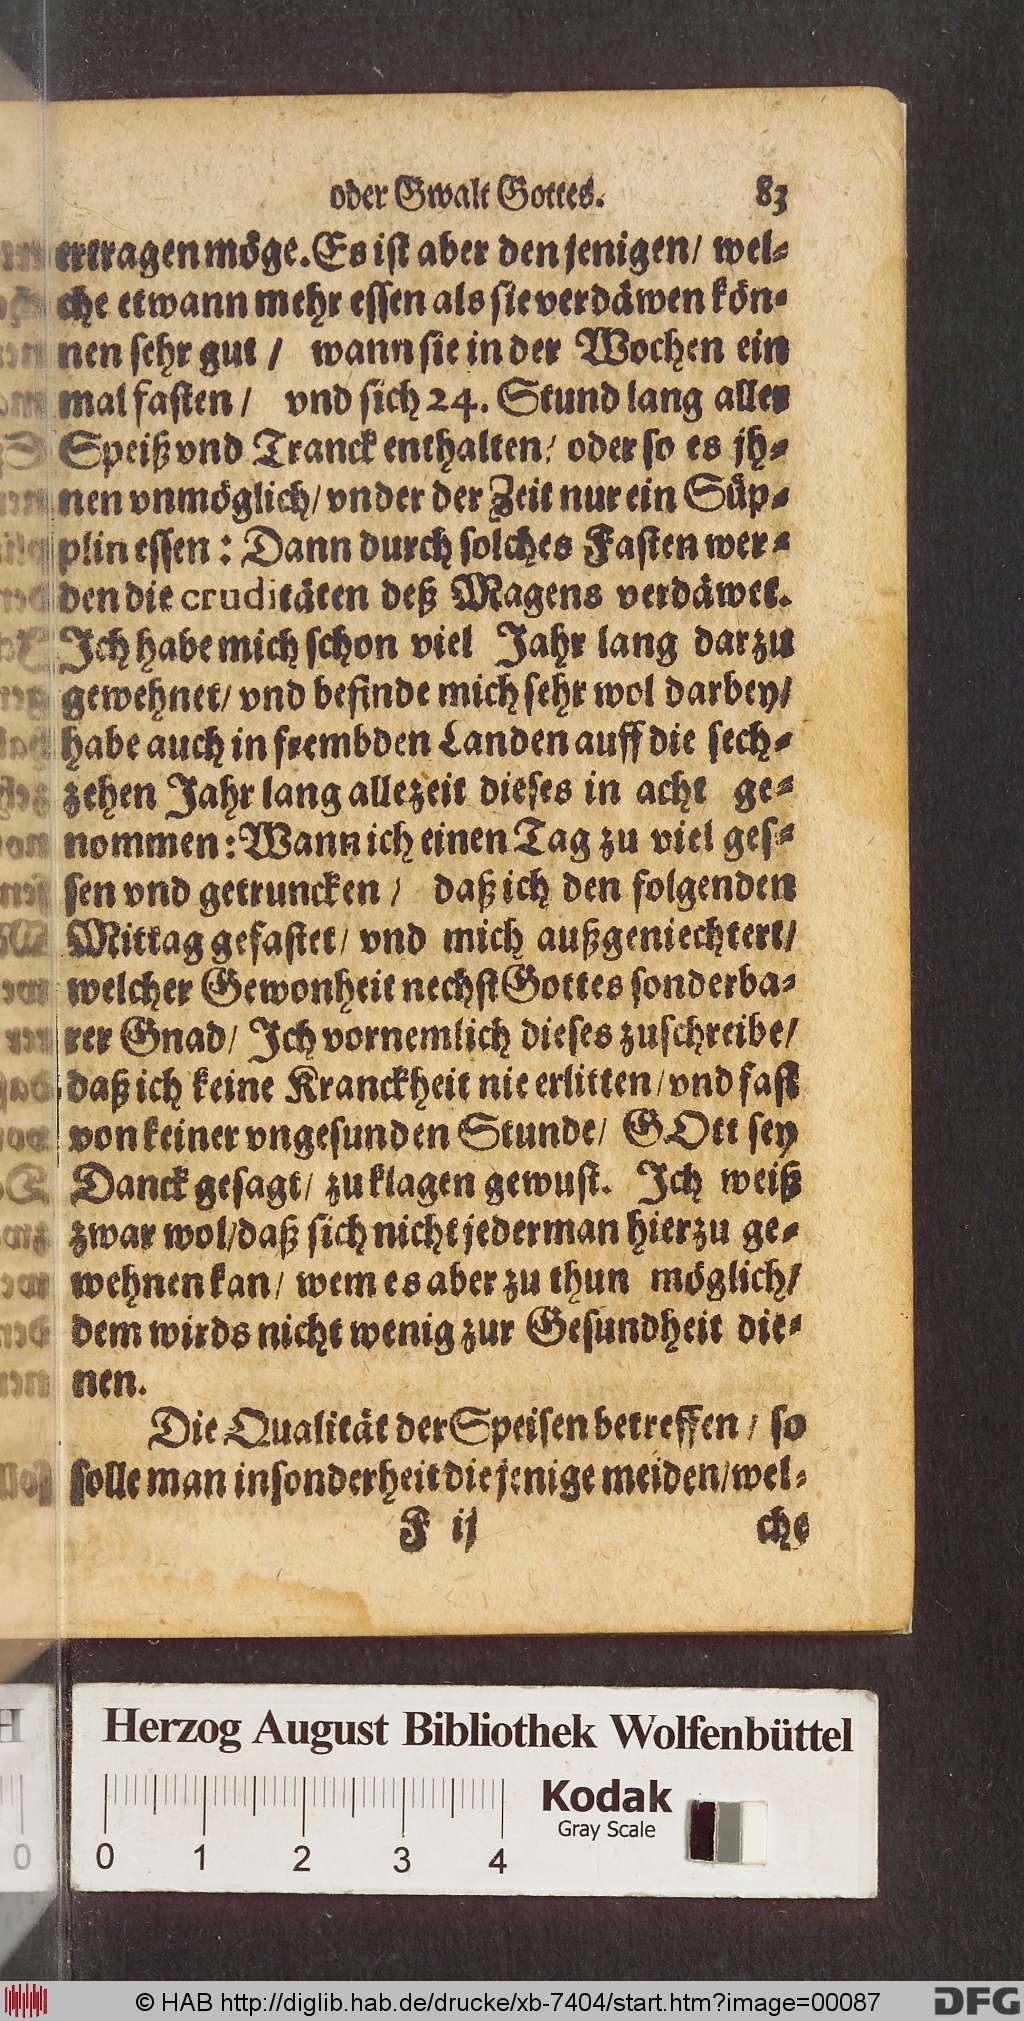 oder Gwalt Gottes. 83
ertragen möge. Es ist aber den jenigen/ wel-
che etwann mehr essen als sie verdäwen kön-
nen sehr gut / wann sie in der Wochen ein
mal fasten / vnd sich 24. Stund lang aller
Speiß vnd Tranck enthalten/ oder so es jh-
nen vnmöglich/ vnder der Zeit nur ein Süp-
plin essen : Dann durch solches Fasten wer-
den die cruditäten deß Magens verdäwet.
Ich habe mich schon viel Jahr lang darzu
gewehnet/ vnd befinde mich sehr wol darbey/
habe auch in frembden Landen auff die sech-
zehen Jahr lang allezeit dieses in acht ge-
nommen: Wann ich einen Tag zu viel ges-
sen vnd getruncken / daß ich den folgenden
Mittag gefastet/ vnd mich außgeniechtert/
welcher Gewonheit nechst Gottes sonderba-
rer Gnad/ Ich vornemlich dieses zuschreibe/
daß ich keine Kranckheit nie erlitten/ vnd fast
von keiner vngesunden Stunde/ GOtt sey
Danck gesagt/ zu klagen gewust. Ich weiß
zwar wol/ daß sich nicht jederman hierzu ge-
wehnen kan/ wem es aber zu thun möglich/
dem wirds nicht wenig zur Gesundheit die-
nen.
Die Qualität der Speisen betreffen / so
solle man insonderheit die jenige meiden/ wel-
F ij che
Herzog August Bibliothek Wolfenbüttel
Kodak
Gray Scale
0 1 2 3 4
© HAB http://diglib.hab.de/drucke/xb-7404/start.htm?image=00087
DFG